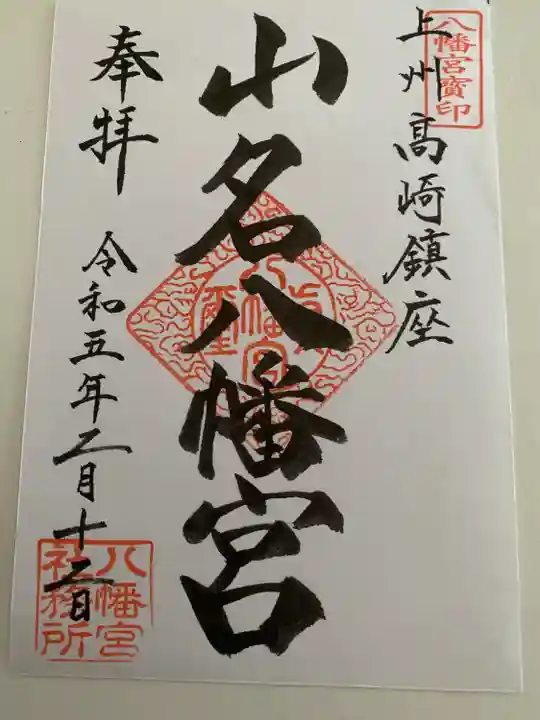 八幡宮寶印
上州高崎鎮座
山名八幡宮
八幡宮
奉拝
令和五年二月十二日
八幡宮
社務所